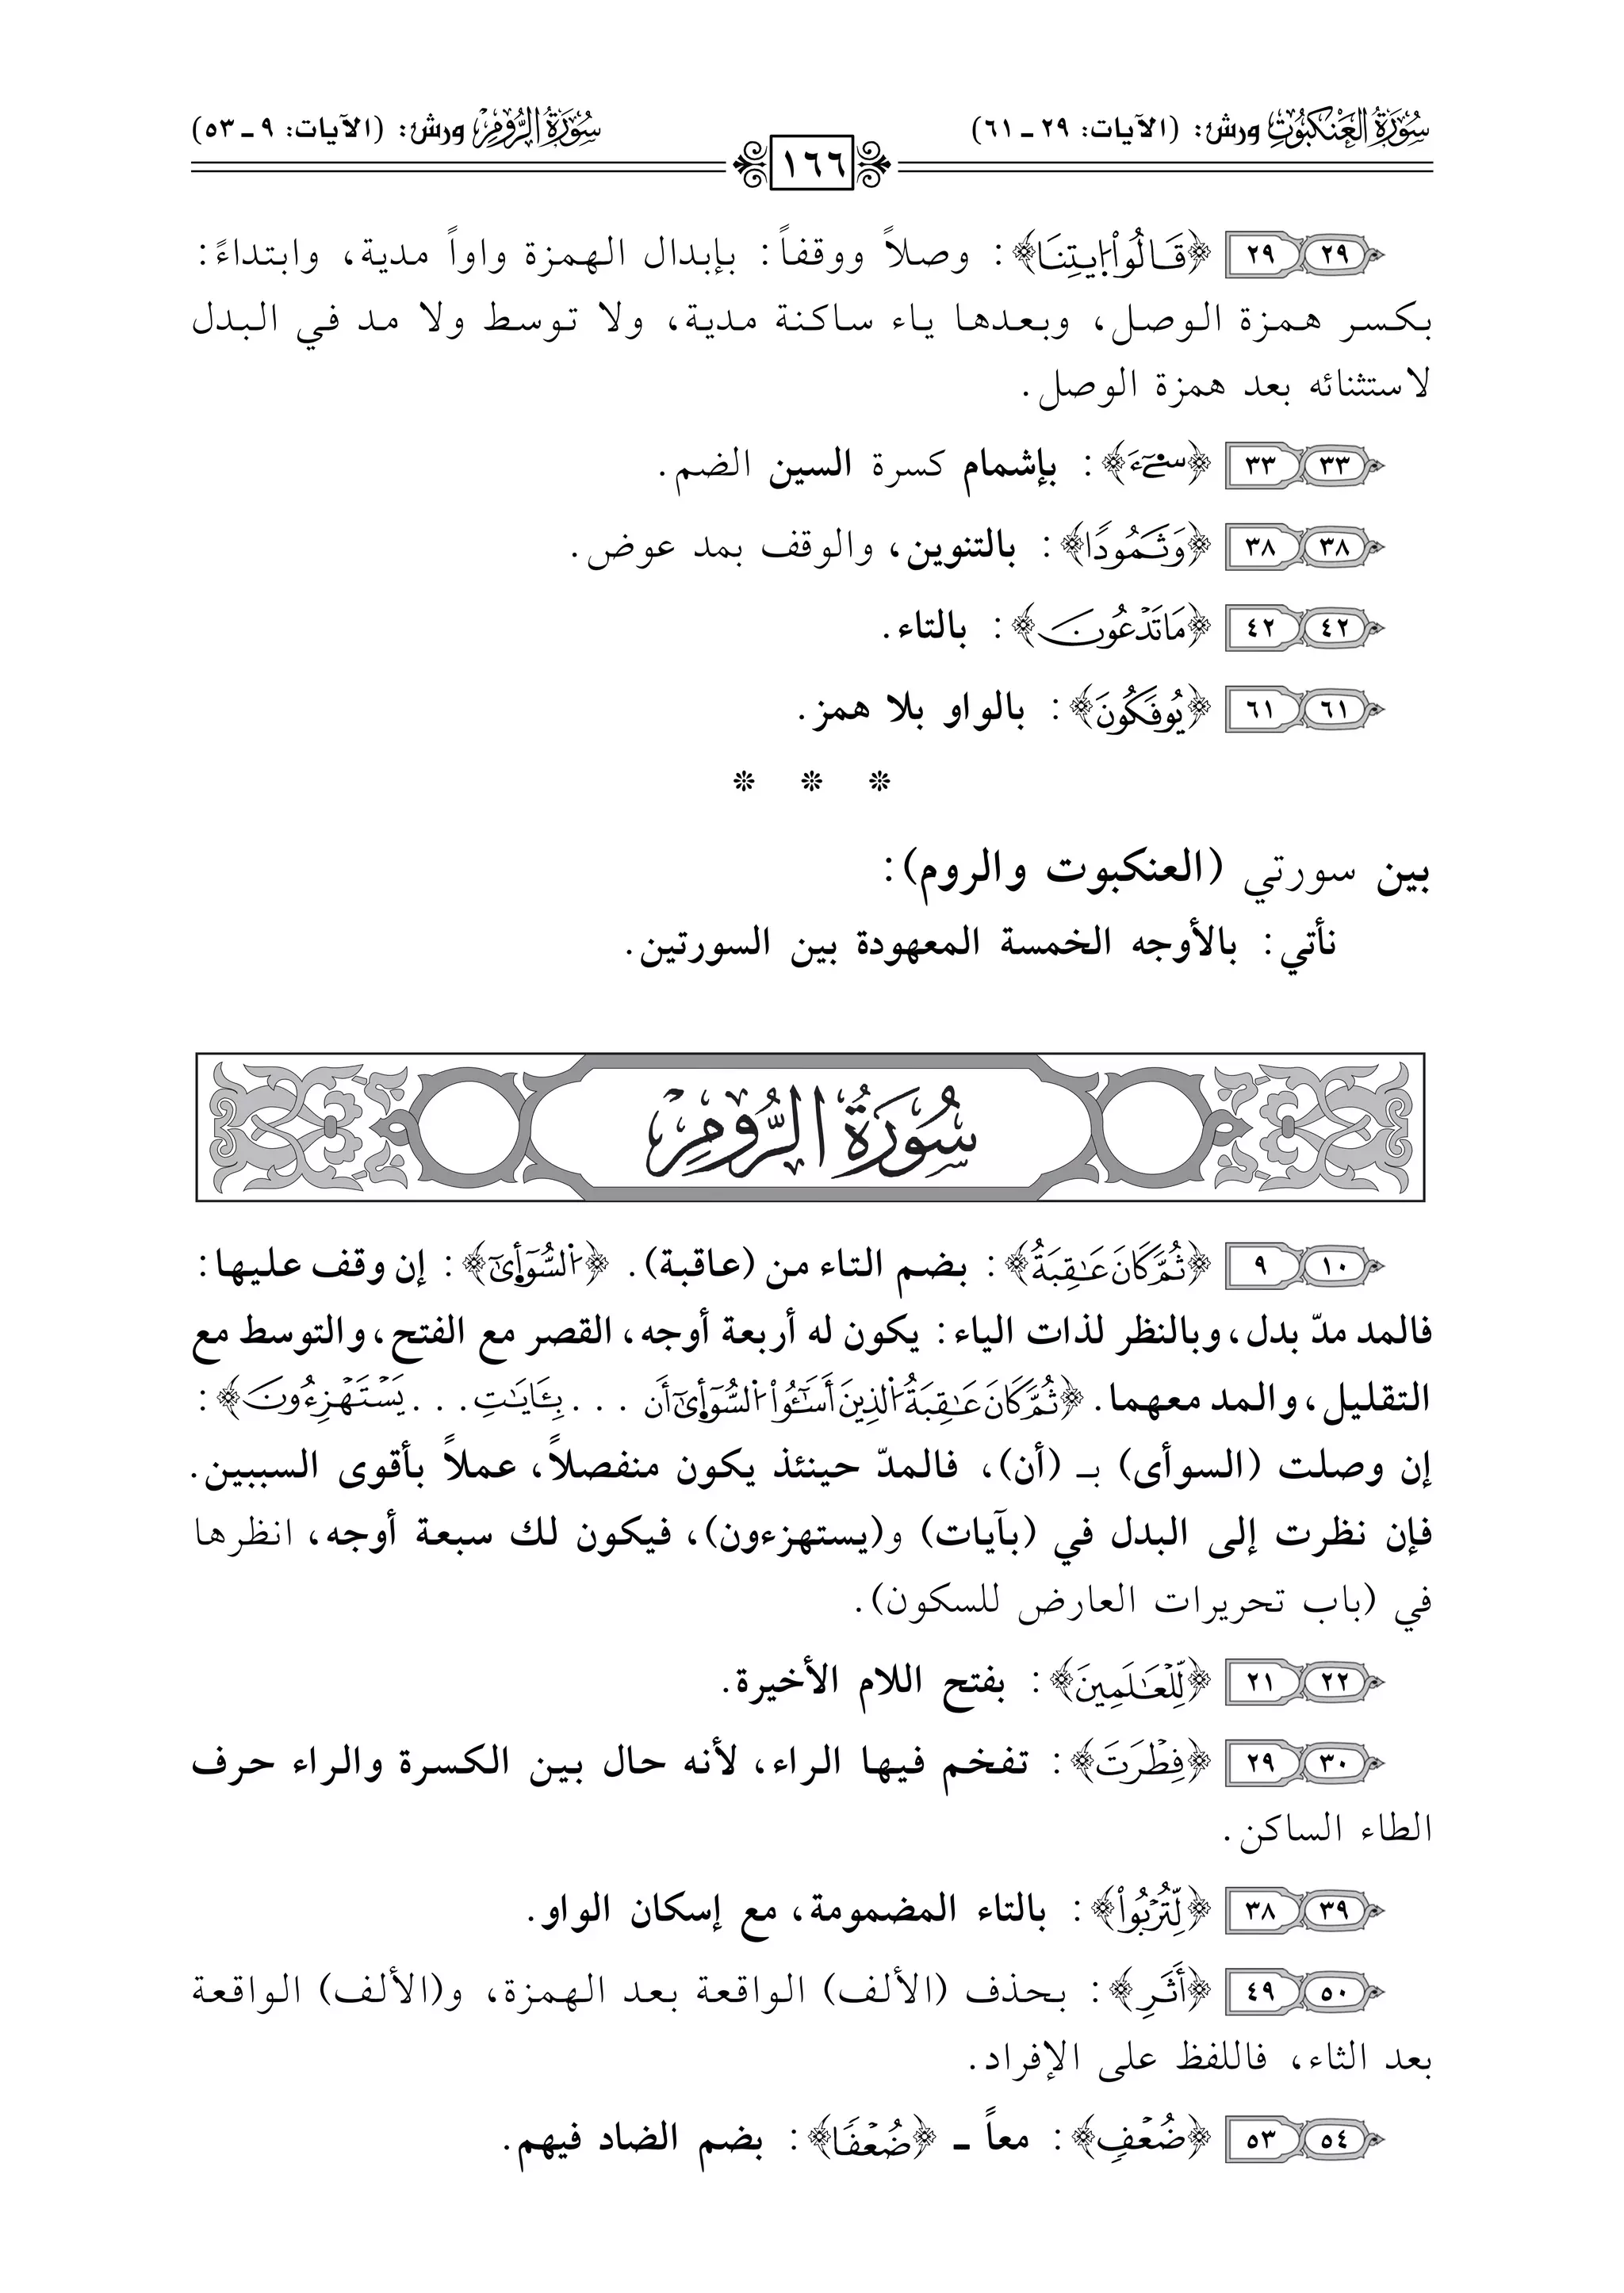 سُورَةُ العَنكَبُوتِ ورش: (الآيات: ٢٩ ـ ٦١)
سُورَةُ الرُّومِ ورش: (الآيات: ٩ ـ ٥٣)
١٦٦
٢٩ ٢٩ ﴿قَالُواْ اُ۪يتِنَا﴾: وصلاً ووقفاً: بإبدال الهمزة واواً مدية، وابتداءً:
بكسر همزة الوصل، وبعدها ياء ساكنة مدية، ولا توسط ولا مد في البدل
لاستثنائه بعد همزة الوصل.
٣٣ ٣٣ ﴿سِےٓءَ﴾: بإشمام كسرة السين الضم.
٣٨ ٣٨ ﴿وَثَمُودًا﴾: بالتنوين، والوقف بمد عوض.
٤٢ ٤٢ ﴿مَا تَدْعُونَ﴾: بالتاء.
٦١ ٦١ ﴿يُوفَكُونَ﴾: بالواو بلا همز.
* * *
بين سورتي (العنكبوت والروم):
نأتي: بالأوجه الخمسة المعهودة بين السورتين.
سُورَةُ الرُّومِ
١٠ ٩ ﴿ثُمَّ كَانَ عَٰقِبَةُ﴾: بضم التاء من (عاقبة). ﴿اَ۬لسُّوٓأ۪ىٰٓ﴾: إن وقف عليها:
فالمد مدّ بدل، وبالنظر لذات الياء: يكون له أربعة أوجه، القصر مع الفتح، والتوسط مع
التقليل، والمد معهما. ﴿ثُمَّ كَانَ عَٰقِبَةُ اُ۬لذِينَ أَسَٰٓـُٔواْ اُ۬لسُّوٓأ۪ىٰٓ أَن ... بِـَٔايَٰتِ ... يَسْتَهْزِءُونَ﴾:
إن وصلت (السوأى) بـ (أن)، فالمدّ حينئذ يكون منفصلاً، عملاً بأقوى السببين.
فإن نظرت إلى البدل في (بآيات) و(يستهزءون)، فيكون لك سبعة أوجه، انظرها
في (باب تحريرات العارض للسكون).
٢٢ ٢١ ﴿لِّلْعَٰلَمِينَ﴾: بفتح اللام الأخيرة.
٣٠ ٢٩ ﴿فِطْرَتَ﴾: تفخم فيها الراء، لأنه حال بين الكسرة والراء حرف
الطاء الساكن.
٣٩ ٣٨ ﴿لِّتُرْبُواْ﴾: بالتاء المضمومة، مع إسكان الواو.
٥٠ ٤٩ ﴿أَثَرِ﴾: بحذف (الألف) الواقعة بعد الهمزة، و(الألف) الواقعة
بعد الثاء، فاللفظ على الإفراد.
٥٤ ٥٣ ﴿ضُعْفٍ﴾: معاً ـ ﴿ضُعْفًا﴾: بضم الضاد فيهم.